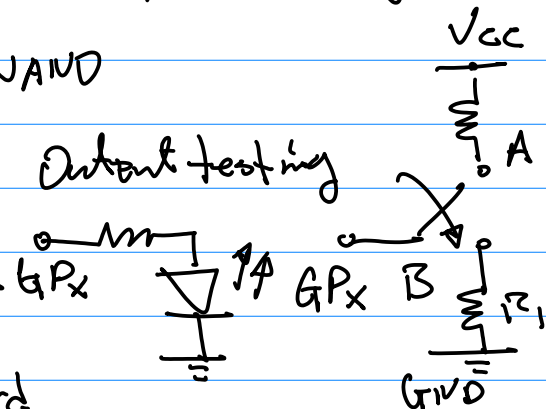 Vcc
NAND
A
Output testing
GPx
GPx
B
R1
GND